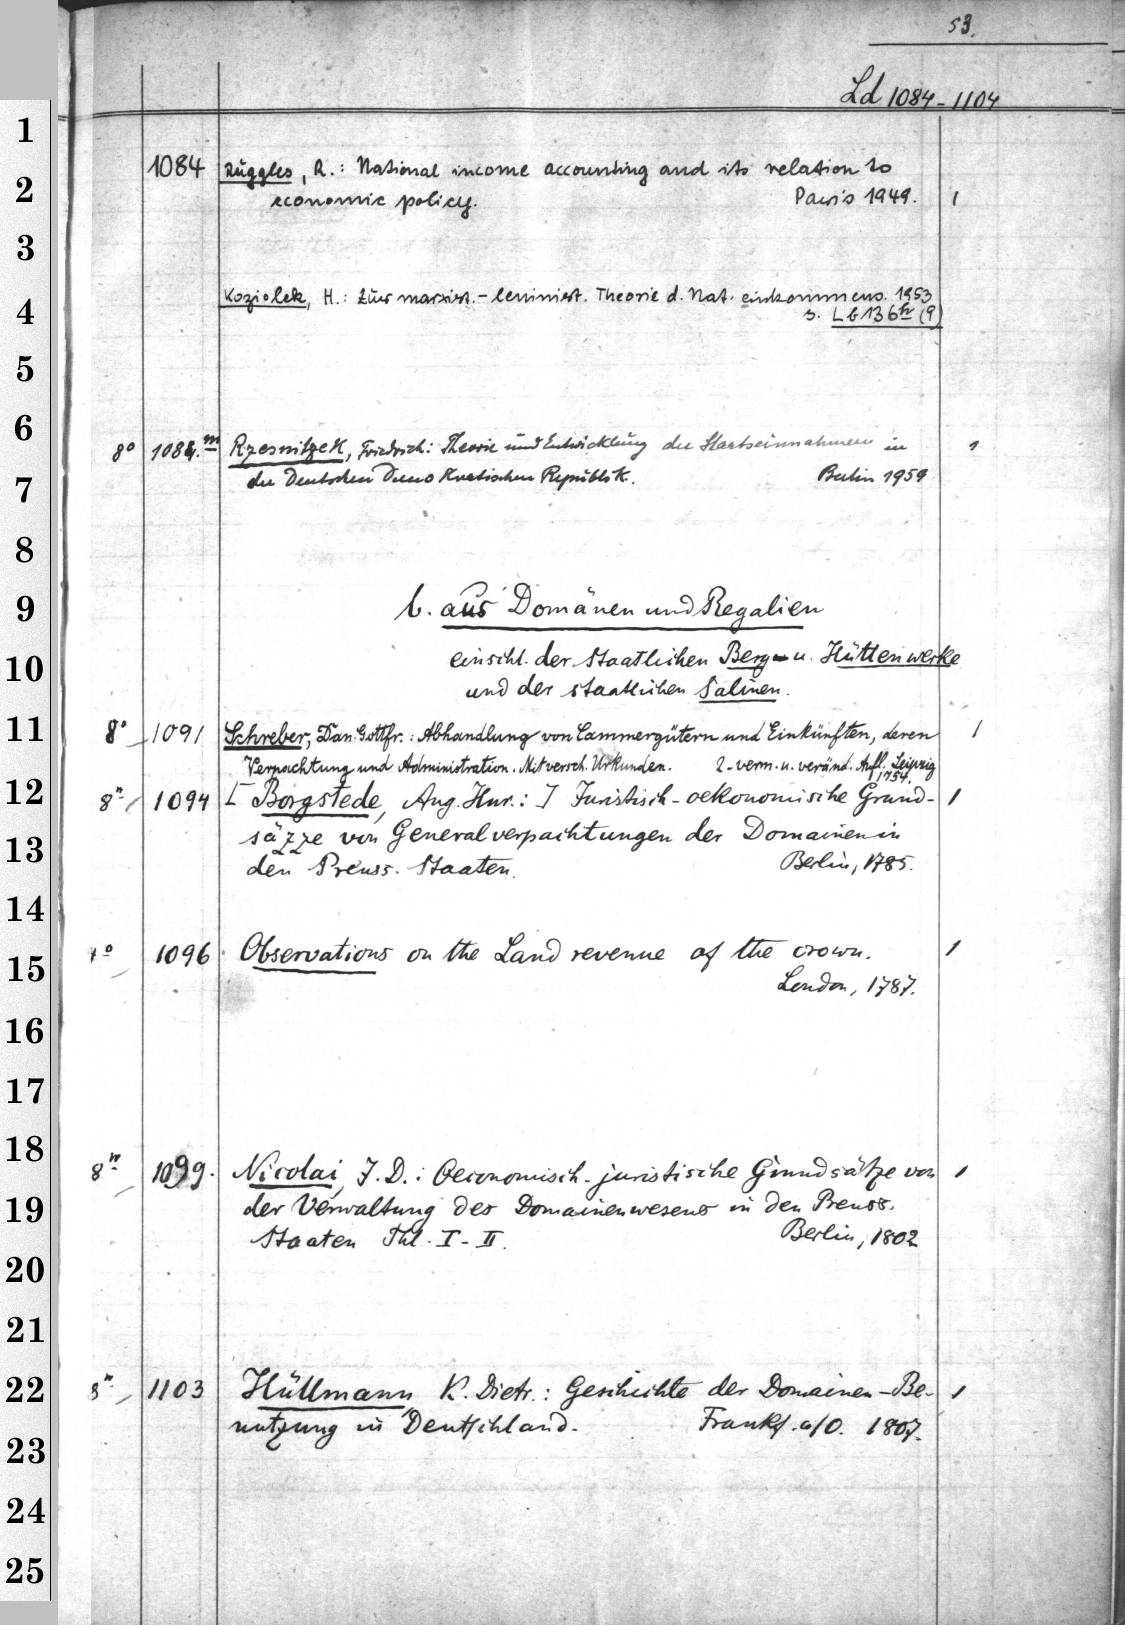 53.
Ld 1084-1104
1
1084 Ruggles, R.: National income accounting and its relation to
2
economic policy. Paris 1949. 1
3
Koziolek, H.: Zur marxist.-leninist. Theorie d. Nat. einkommens. 1953
4
s. Lb 136 (9)
5
6
8° 1084.m Rzesnitzek, Friedrich: Theorie und Entwicklung der Staatseinnahmen in 1
7
der Deutschen Demokratischen Republik. Berlin 1959
8
9
b. aus Domänen und Regalien
10
einschl. der staatlichen Berg- u. Hüttenwerke
und der staatlichen Salinen.
11
8° 1091 Schreber, Dan. Gottfr.: Abhandlung von Cammergütern und Einkünften, deren 1
Verpachtung und Administration. Mit versch. Urkunden. 2. verm. u. veränd. Aufl. Leipzig
1754.
12
8° 1094 [Borgstede, Aug. Hnr.:] Juristisch-oekonomische Grund- 1
13
säzze von Generalverpachtungen der Domainen in
den Preuss. Staaten. Berlin, 1785.
14
15
4° 1096 Observations on the Land revenue of the crown. 1
London, 1787.
16
17
18
8° 1099. Nicolai, J. D.: Oeconomisch-juristische Grundsätze von 1
19
der Verwaltung des Domainenwesens in den Preuss.
Staaten Thl. I-II. Berlin, 1802
20
21
22
8° 1103 Hüllmann K. Dietr.: Geschichte der Domainen-Be- 1
23
nutzung in Deutschland. Frankf. a/O. 1807.
24
25